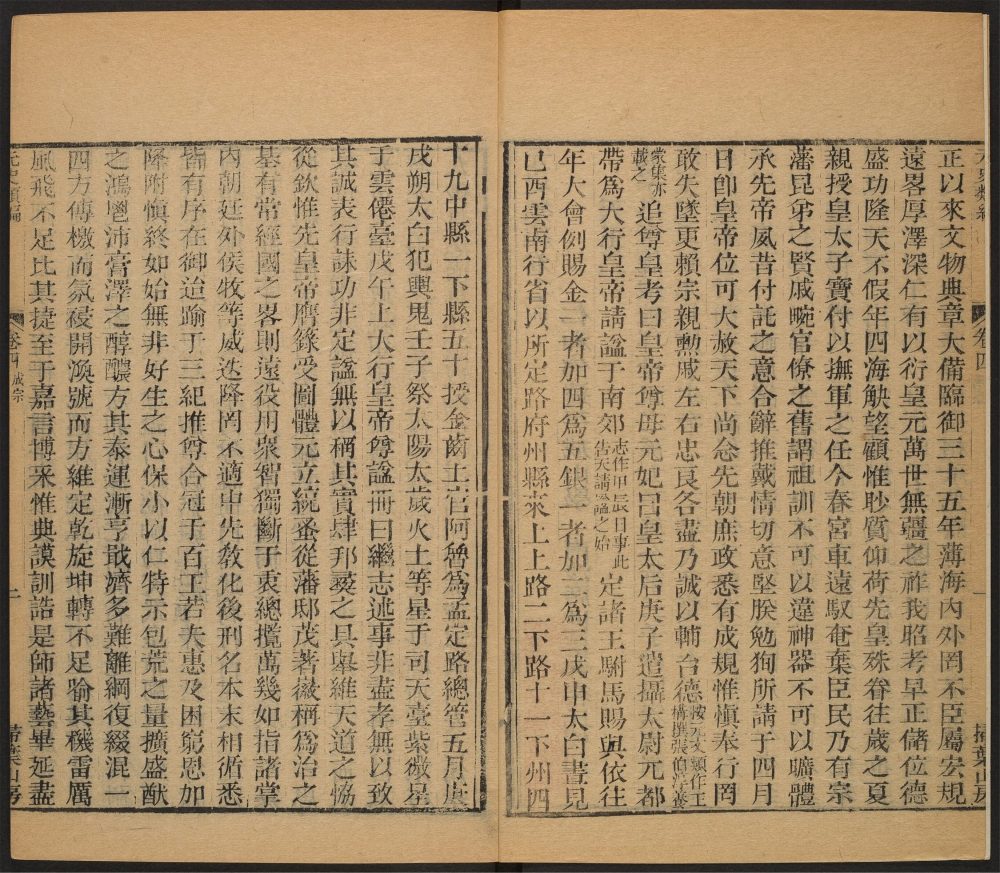 正以來文物典章大備臨御三十五年薄海內外罔不臣屬宏規
遠畧厚澤深仁有以衍皇元萬世無疆之祚我昭考早正儲位德
盛功隆天不假年四海觖望顧惟眇質仰荷先皇殊眷往歲之夏
親授皇太子寶付以撫軍之任今春宮車遠馭奄棄臣民乃有宗
藩昆弟之賢戚畹官僚之舊謂祖訓不可以違神器不可以曠體
承先帝夙昔付託之意合辭推戴情切意堅朕勉狥所請于四月
日卽皇帝位可大赦天下尚念先朝庶政悉有成規惟慎奉行罔
敢失墜更賴宗親勳戚左右忠良各盡乃誠以輔台德按元文類作王構撰張伯淳養
蒙集亦載之追尊皇考曰皇帝尊母元妃曰皇太后庚子遣攝太尉元都
帶爲大行皇帝請諡于南郊志作甲辰日事此告天請諡之始定諸王駙馬賜與依往
年大會例賜金一者加四爲五銀一者加二爲三戊申太白晝見
己酉雲南行省以所定路府州縣來上上路二下路十一下州四
卷四
一
掃葉山房
十九中縣一下縣五十授金齒土官阿魯爲孟定路總管五月庚
戌朔太白犯輿鬼壬子祭太陽太歲火土等星于司天臺紫微星
于雲僊臺戊午上大行皇帝尊諡冊曰繼志述事非盡孝無以致
其誠表行誄功非定諡無以稱其實肆邦彛之具舉維天道之恊
從欽惟先皇帝膺籙受圖體元立統蚤從藩邸茂著徽稱爲治之
基有常經國之畧則遠役用衆智獨斷于衷總攬萬幾如指諸掌
內朝廷外侯牧等威迭降罔不適中先敎化後刑名本末相循悉
皆有序在御迨踰于三紀推尊合冠于百王若夫惠及困窮恩加
降附慎終如始無非好生之心保小以仁特示包荒之量擴盛猷
之鴻鬯沛膏澤之醇醲方其泰運漸亨戢濟多難離綱復綴混一
四方傳檄而氛祲開渙號而方維定乾旋坤轉不足喻其機雷厲
風飛不足比其捷至于嘉言博采惟典謨訓誥是師諸藝畢延盡
元史類編
卷四 成宗
二
掃葉山房